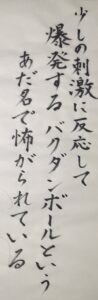 少しの刺激に反応して
爆発する バクダンボールという
あだ名で怖がられている